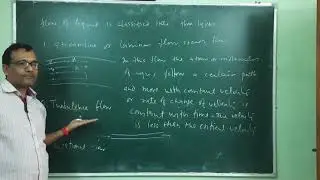 flow of liquid is classified into two types
1. Streamline or laminar flow, steady flow
In this flow the atoms or molecules
of liquid follow a certain path
and move with constant velocity
or rate of change of velocity is
constant with time. The velocity
is less than the critical velocity
Turbulence flow